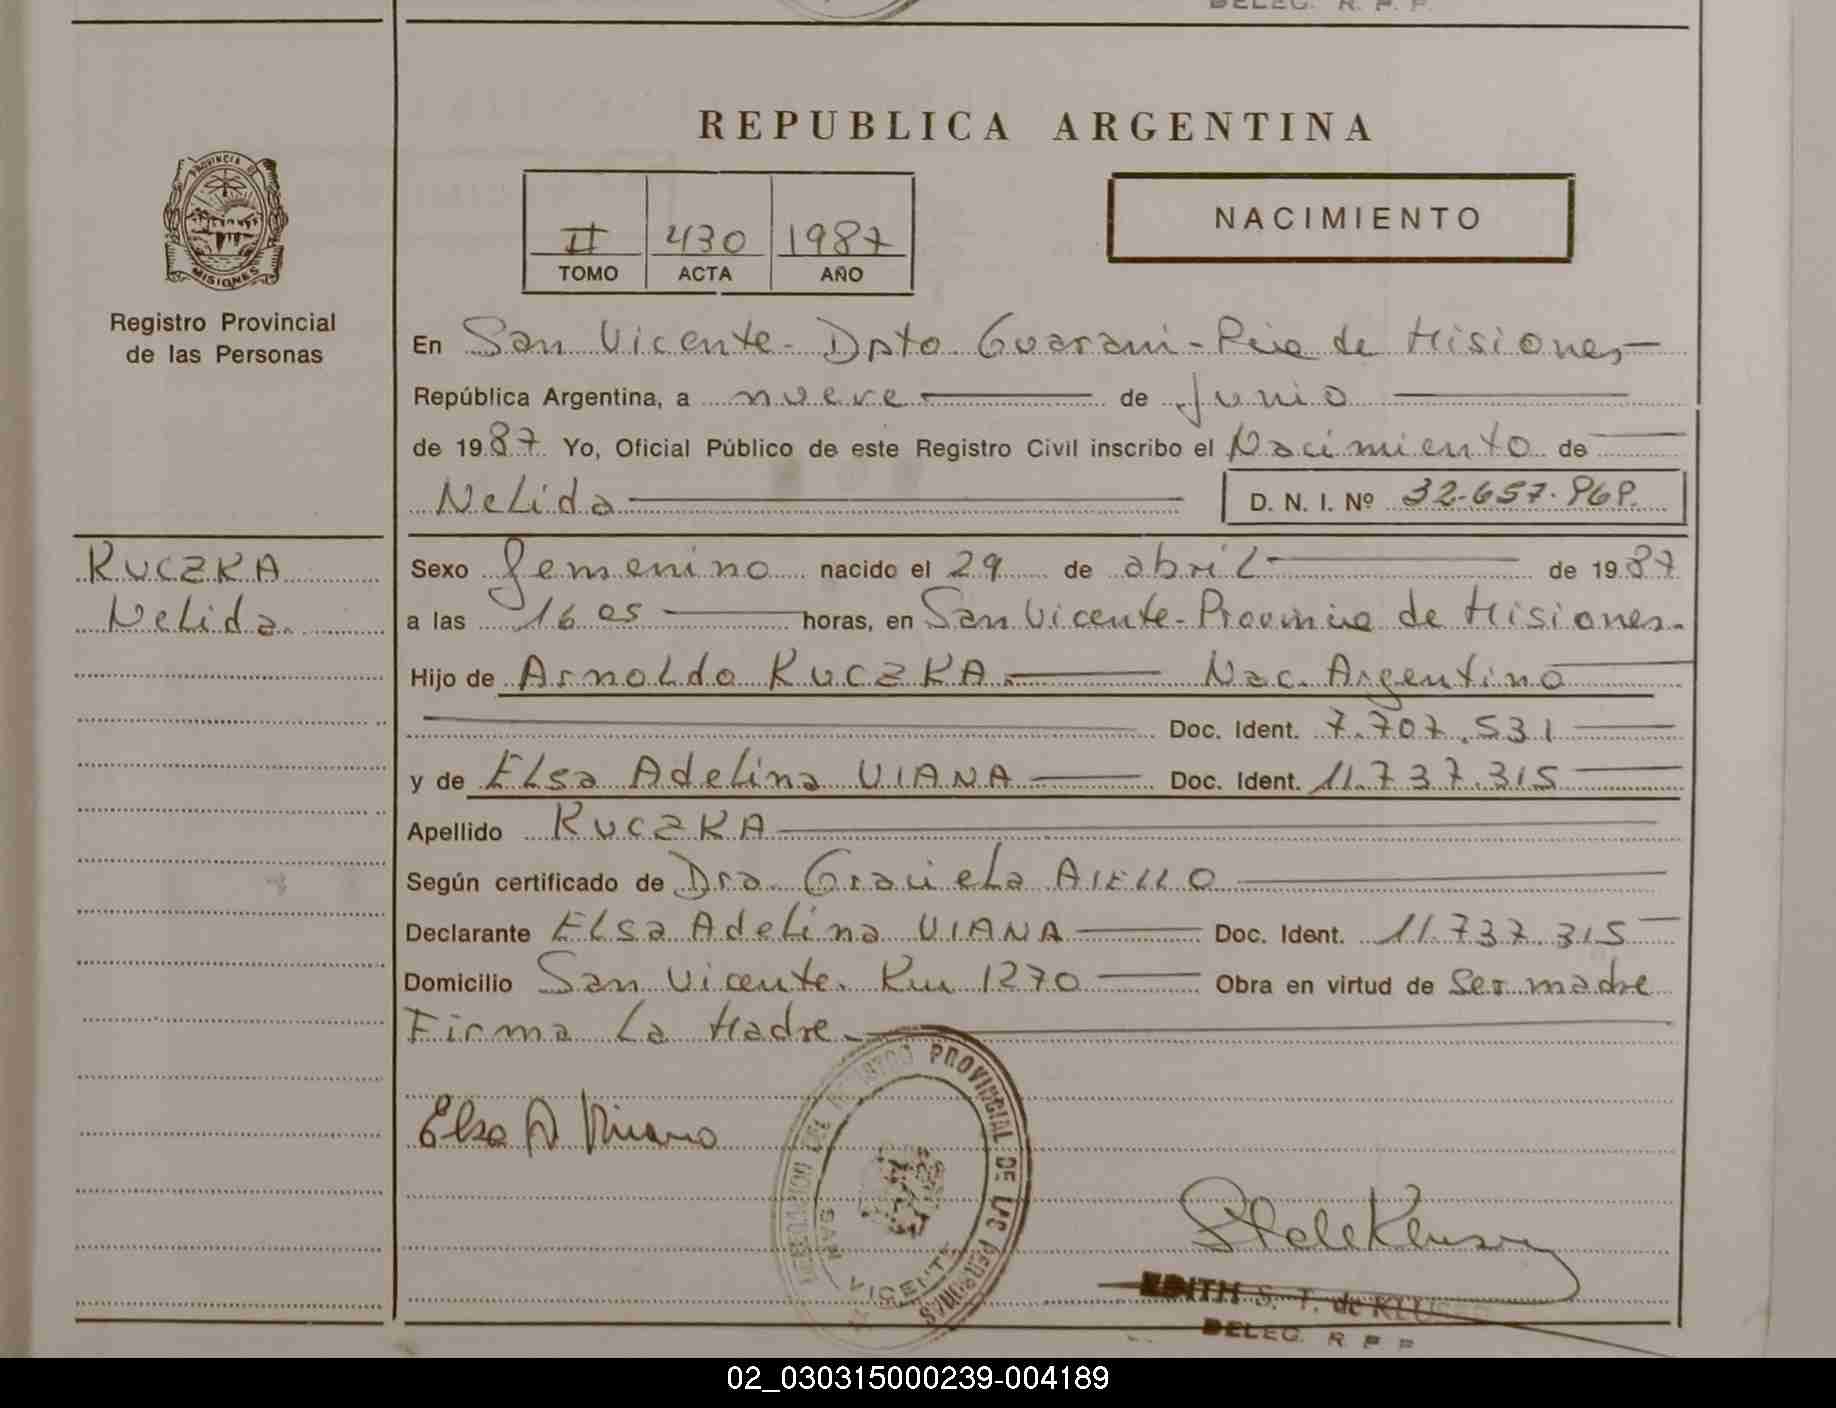 DELEG. R. P. P.
REPUBLICA ARGENTINA
PROVINCIA DE
MISIONES
II 430 1987
TOMO ACTA AÑO
NACIMIENTO
Registro Provincial
de las Personas
En San Vicente - Dpto Guarani - Pcia de Misiones
República Argentina, a nueve de Junio
de 1987 Yo, Oficial Público de este Registro Civil inscribo el Nacimiento de
Nelida D. N. I. Nº 32.657.968.
KUCZKA
Nelida.
Sexo femenino nacido el 29 de abril de 1987
a las 16 05 horas, en San Vicente - Provincia de Misiones.
Hijo de Arnoldo KUCZKA. Nac. Argentino
Doc. Ident. 7.707.531
y de Elsa Adelina VIANA Doc. Ident. 11.737.315
Apellido KUCZKA
Según certificado de Dra. Graciela AIELLO
Declarante Elsa Adelina VIANA Doc. Ident. 11.737.315
Domicilio San Vicente. Km 1270 Obra en virtud de Ser madre
Firma La Madre.
Elsa A Viana
REGISTRO PROVINCIAL DE LAS PERSONAS
SAN VICENTE
EDITH S. T. de
DELEG. R. P. P.
02_030315000239-004189